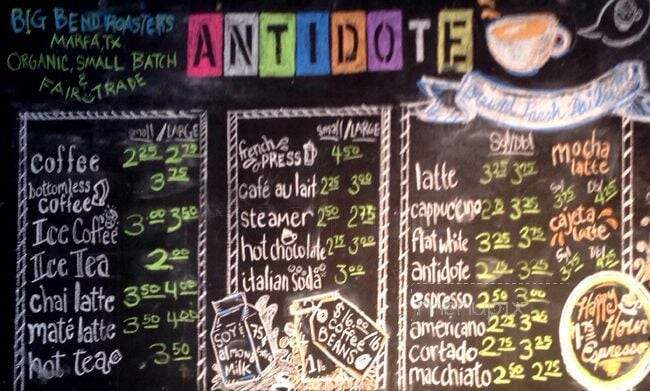 BIG BEND ROASTERS
MARFA, TX
ORGANIC, SMALL BATCH
&
FAIR TRADE
ANTIDOTE
Brewed Fresh Daily
small/LARGE
coffee 2.25 2.75
bottomless coffee 3.75
Ice Coffee 3.00 3.50
Ice Tea 2.00
chai latte 3.50 4.00
maté latte 3.50 4.00
hot tea 3.50
small/LARGE
french PRESS 4.50
café au lait 2.25 3.00
steamer 2.50 2.75
hot chocolate 2.75 3.00
italian Soda 3.00
SOY &
almond
MILK
.75
$16.00 lb
COFFEE
BEANS
1 lb
Sgl/Dbl
latte 3.25 3.75
cappuccino 3.25
flat white 3.25 3.75
antidote 2.75 3.25
espresso 2.50 3.00
americano 2.75 3.25
cortado 2.75 3.25
macchiato 2.50 2.75
mocha
latte
Sgl Dbl
3.75 4.25
cajeta
latte
Sgl Dbl
3.75 4.25
Happy
Hour
1.75
Espresso